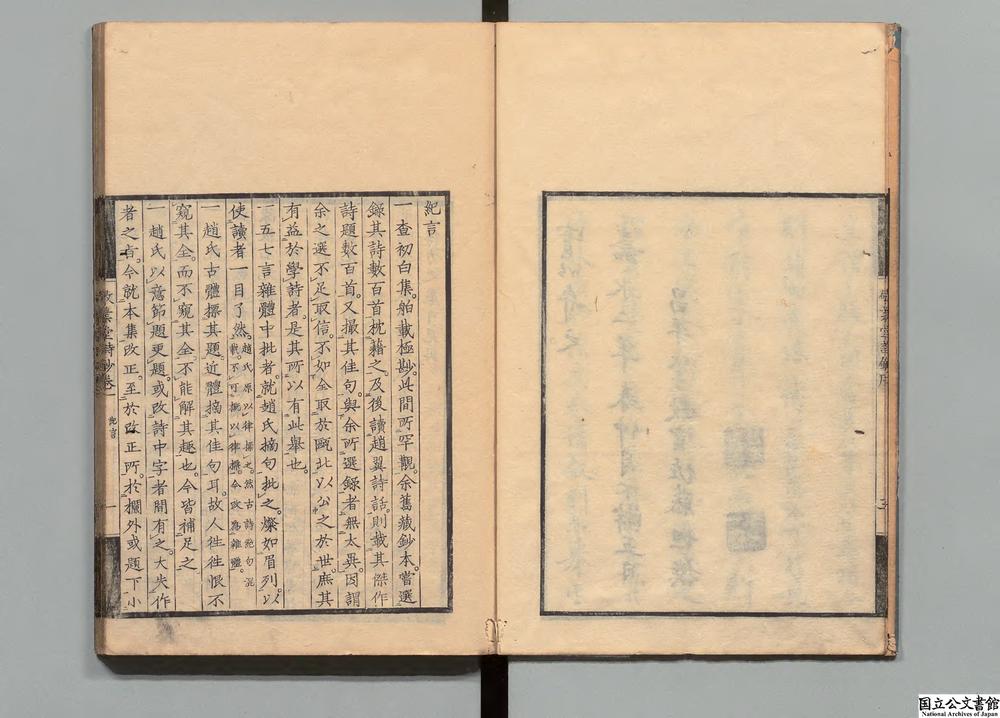 紀言
一查初白集。舶載極尠。此間所罕觀。余舊藏鈔本。嘗選
錄其詩數百首枕藉之。及後讀趙翼詩話。則載其傑作
詩題數百首。又撮其佳句。與余所選錄者無太異。因謂
余之選不足取信。不如全取於甌北以公之於世。庶其
有益於學詩者。是其所以有此舉也。
一五七言雜體中批者。就趙氏摘句批之。燦如眉列。以
使讀者一目了然。趙氏原以律探之。然古詩絕句混
載。不可概以律。今改為雜體。
一趙氏古體摽其題。近體摘其佳句耳。故人往往恨不
窺其全。而不窺其全。不能解其趣也。今皆補足之
一趙氏以意節題更題。或改詩中字者間有之。大失作
者之旨。今就本集改正。至於改正所。於欄外或題下小
敬業堂詩鈔卷一
紀言
敬業堂詩鈔序
国立公文書館
National Archives of Japan